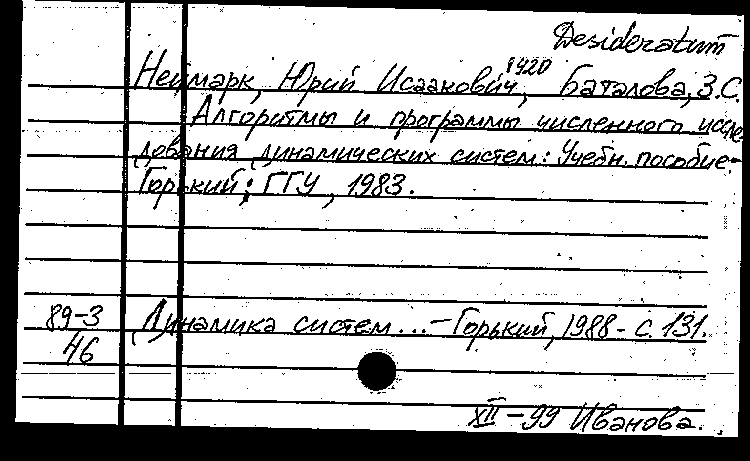 Desideratum
Неймарк, Юрий Исаакович, 1920
Баталова, З.С.
Алгоритмы и программы численного иссле
дования динамических систем: Учебн. пособие.-
Горький: ГГУ, 1983.
89-3
46
Динамика систем...-Горький, 1988- с. 131.
XII-99 Иванова.